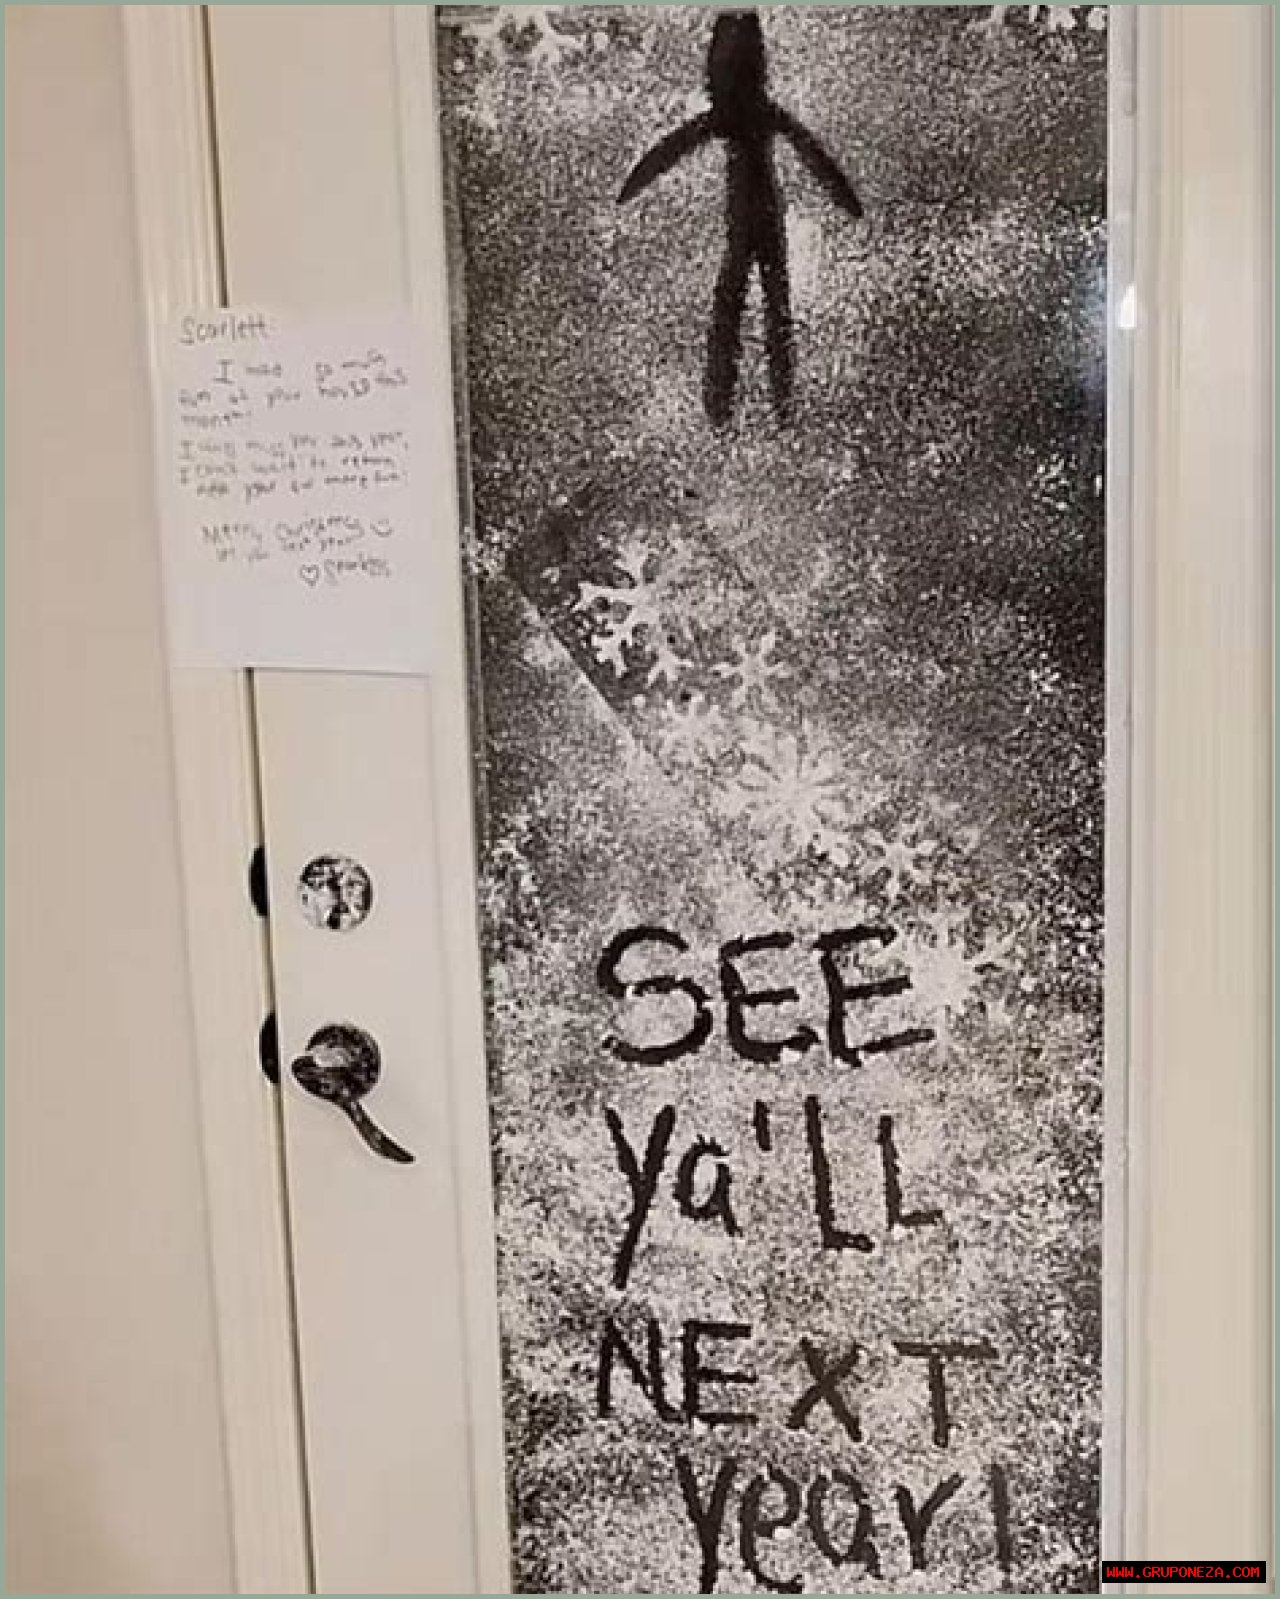 Scarlett
I had so much
fun at your house this
month!
I will miss you this year,
I can't wait to return
next year for more fun!
Merry Christmas
see you next year
♡ Sparkles
SEE
Ya'LL
NEXT
year!
WWW.GRUPONEZA.COM